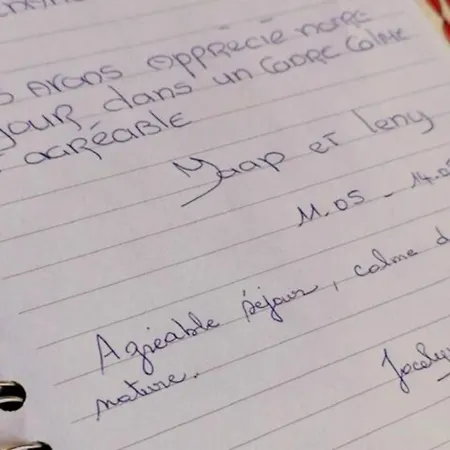 AVONS APPRÉCIÉ NOTRE
JOUR DANS UN CADRE CALME
AGRÉABLE
Yaap et Leny
11.05 - 14.05
Agréable séjour, calme d
nature.
Jocely